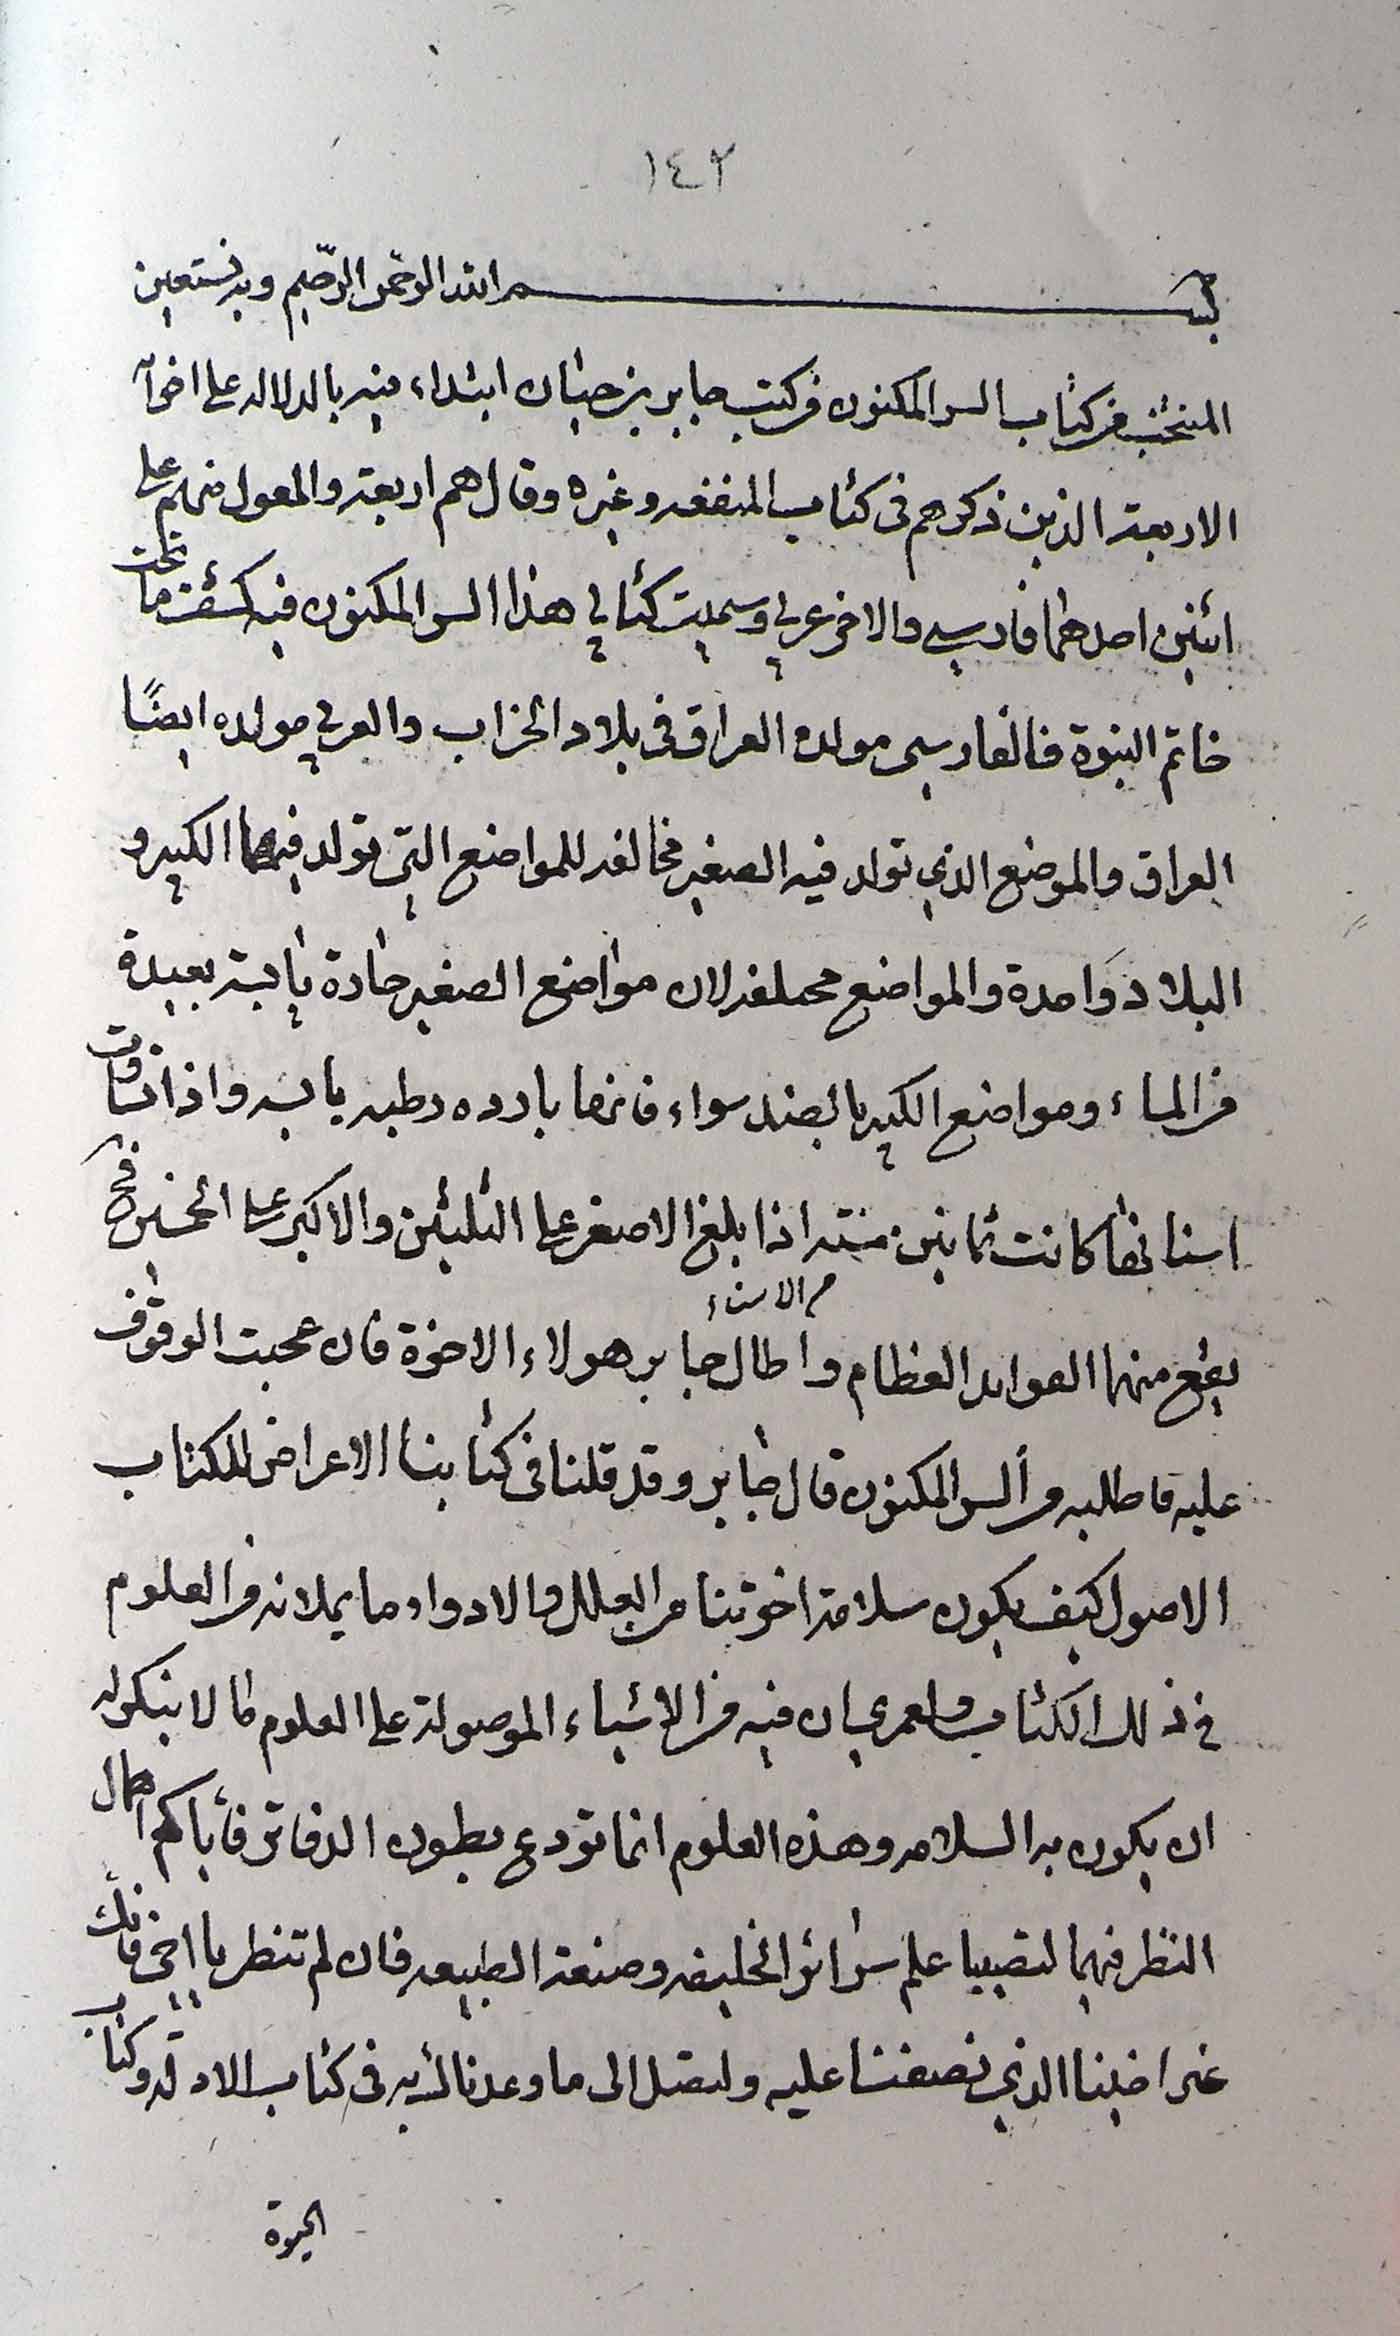 ١٤٢
بسم الله الرحمن الرحيم وبه نستعين
المنتخب من كتاب السر المكنون من كتب جابر بن حيان ابتداء فيه بالدلاله على اخوانه
الاربعة الذين ذكرهم فى كتاب المنفعه وغيره وقال هم اربعة والمعول منهم على
اثنين احدهما فارسي والاخر عربي وسميت كتابي هذا السر المكنون فيه كشفت ما تحت
خاتم النبوة فالفارسى مولده العراق فى بلاد الخراب والعربي مولده ايضًا
العراق والموضع الذي تولد فيه الصغير مخالفه للمواضع التي تولد فيها الكبير و
البلاد واحدة والمواضع مختلفه لان مواضع الصغير حادة يابسة بعيدة
من الماء ومواضع الكبير بالضد سواء فانها بارده رطبه يابسه واذا تساوت
اسنانها كانت ثمانين سنة اذا بلغ الاصغر على الثلثين والاكبر على الخمسين
يقع منهما الفوائد العظام واطال جابر هولاء الاخوة فان عجبت الوقوف
عليه فاطلبه من السر المكنون قال جابر وقد قلنا فى كتابنا الاعراض للكتاب
الاصول كيف يكون سلامة اخوتنا من العلل والادواء وما يملانه من العلوم
فى ذلك الكتاب ولعمري ان فيه من الاشياء الموصولة على العلوم ما لا ينكوله
ان يكون به السلامه وهذه العلوم انما تودع بطون الدفاتر فاياكم اهمال
النظر فيها لتصيبا علم سرائر الخليفه وصنعة الطبيعه فان لم تنظر يا اخى فانك
غير اخينا الذي نصفنا عليه ولتصل الى ما وعدناك به فى كتاب الادلة وكتاب
الحيوة